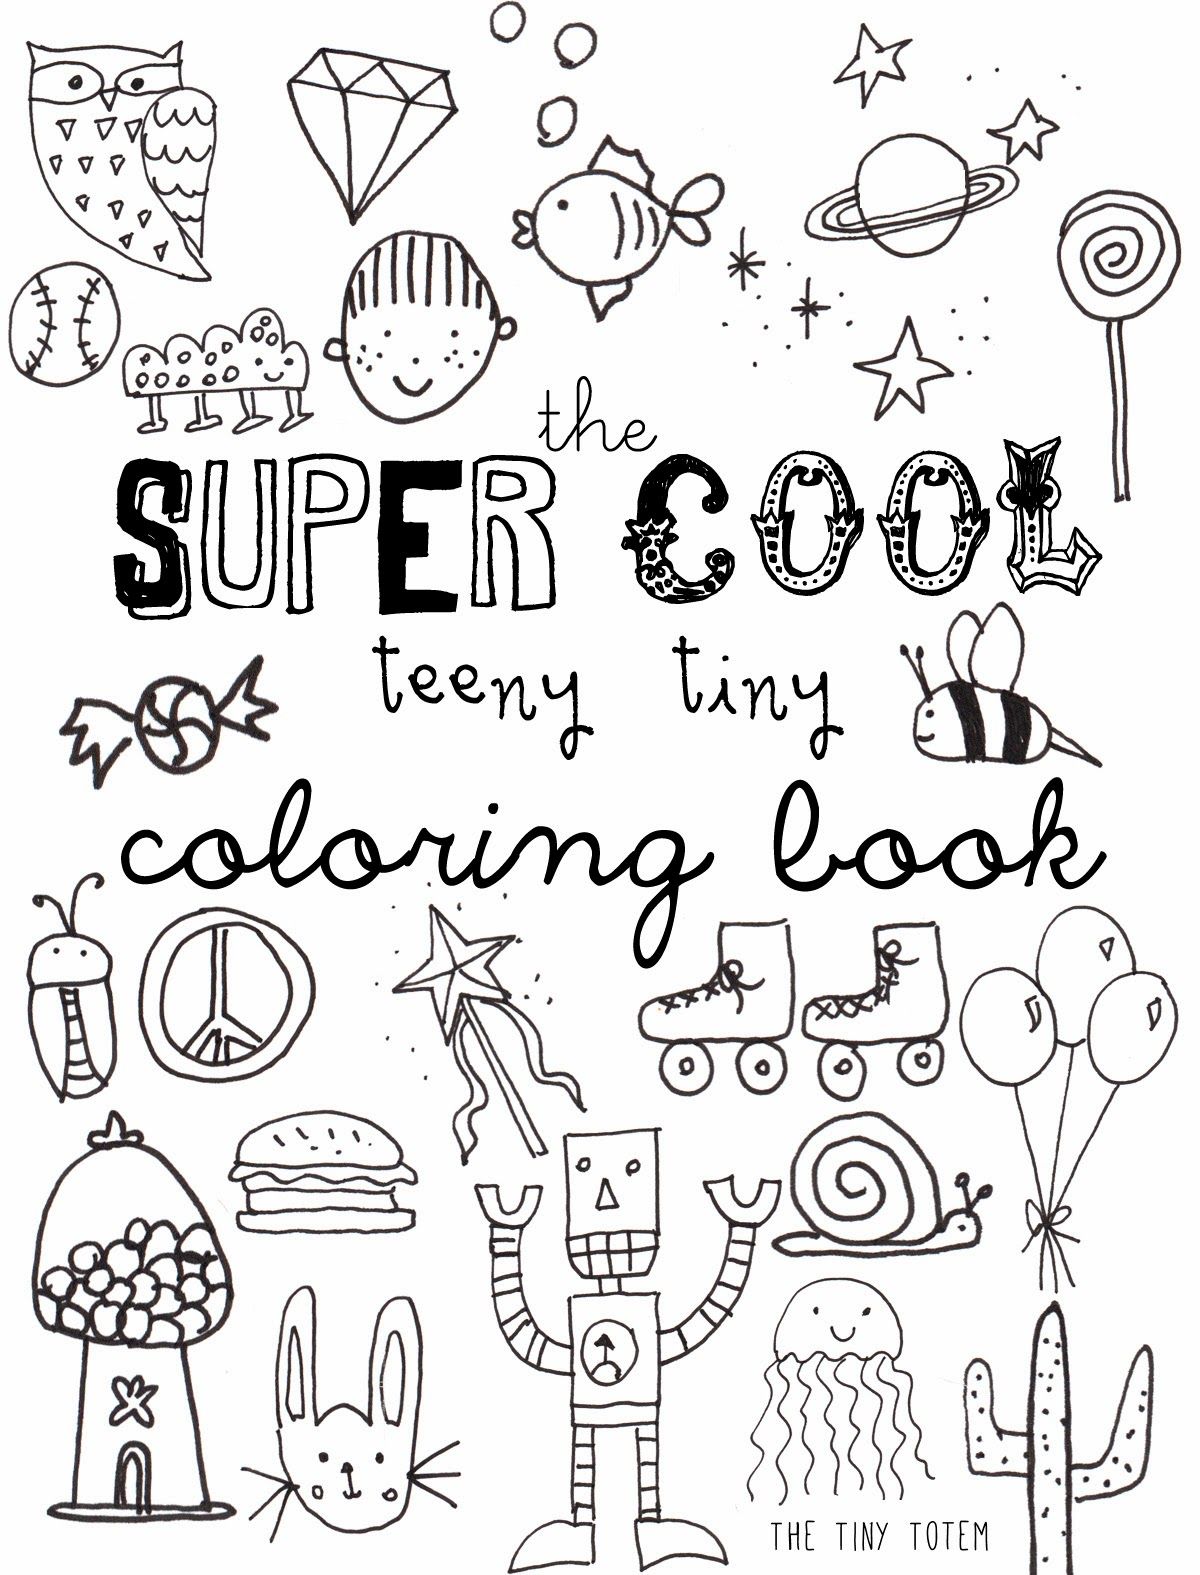 the
SUPER COOL
teeny tiny
coloring book
THE TINY TOTEM